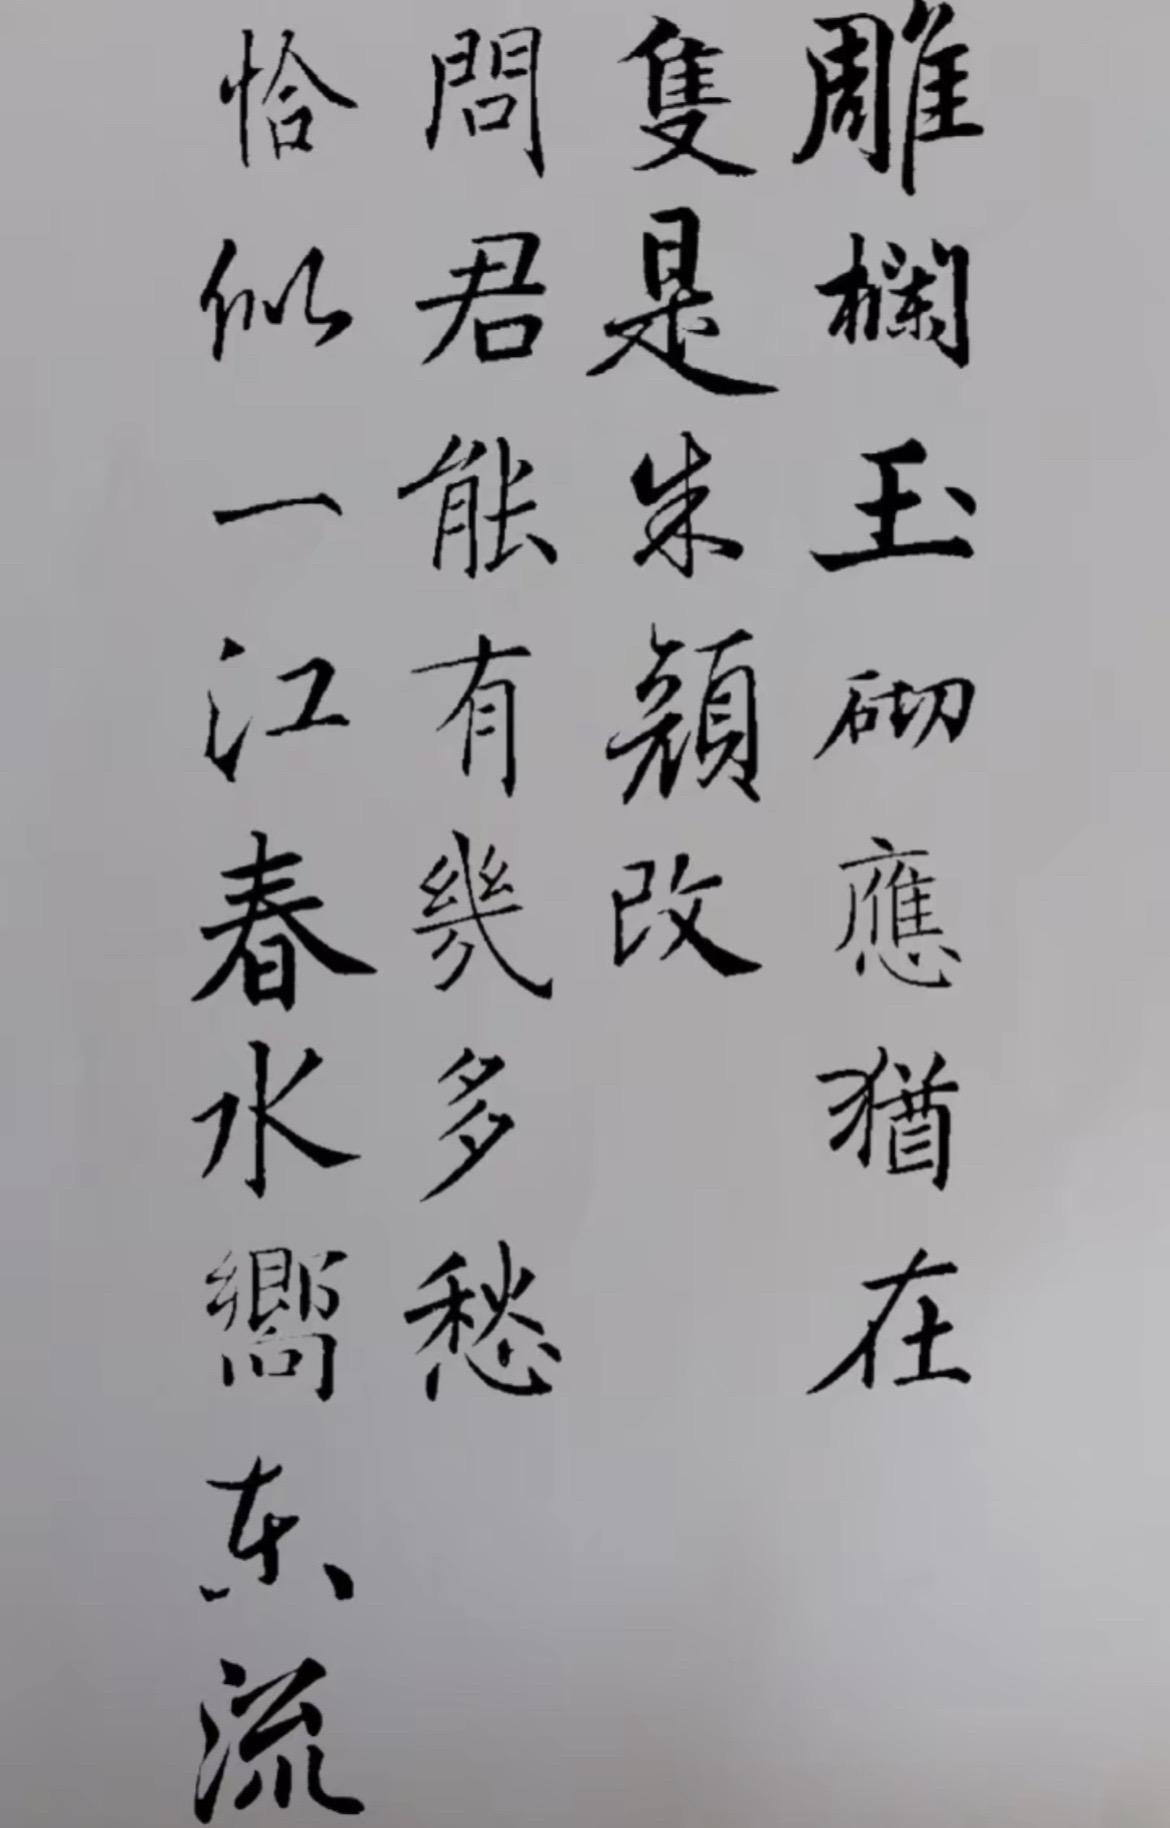 雕欄玉砌應猶在
隻是朱顏改
問君能有幾多愁
恰似一江春水嚮东流